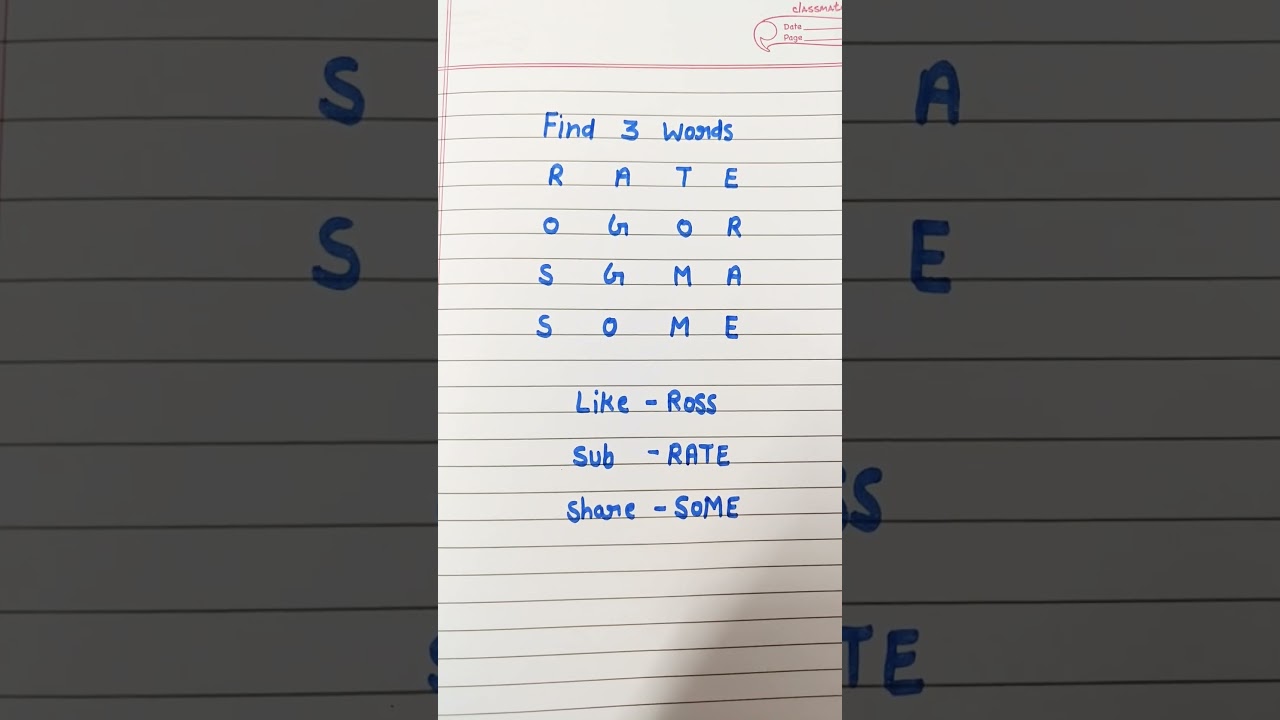 classmat
Date
Page
Find 3 Words
R A T E
O G O R
S G M A
S O M E
Like - ROSS
Sub - RATE
Share - SOME
S A
S E
S
TE